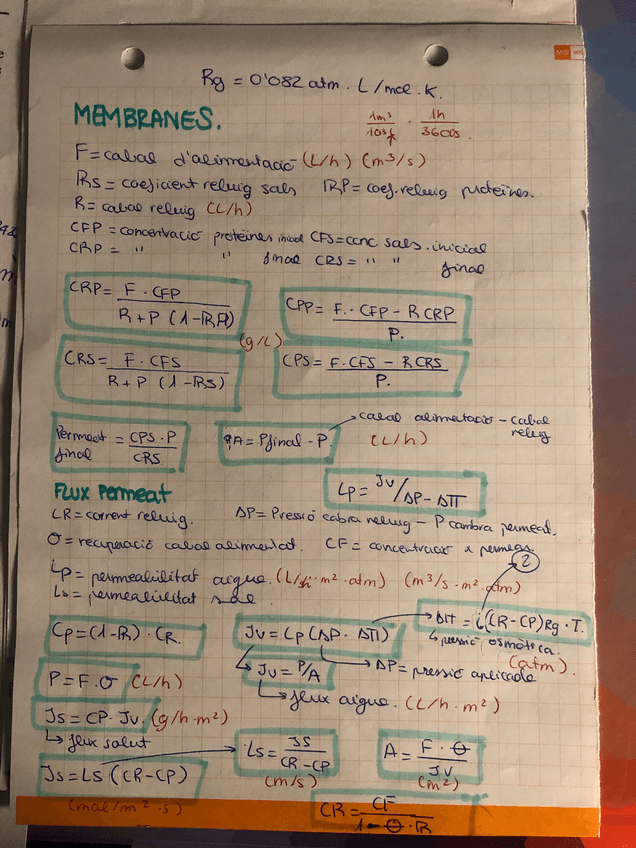 Rg = 0'082 atm. L/mol. K.
MEMBRANES.
1m³/10³L · 1h/3600s.
F = cabal d'alimentació (L/h) (m³/s)
RS = coeficient rebuig sals   RP = coef. rebuig proteïnes.
R = cabal rebuig (L/h)
CFP = concentració proteïnes inicial CFS = conc sals. inicial
CRP = " " final CRS = " " final
CRP = F · CFP / R + P (1-RP)
CPP = F · CFP - R CRP / P.
(g/L)
CRS = F · CFS / R + P (1-RS)
CPS = F · CFS - R CRS / P.
Permeat final = CPS · P / CRS
QA = Pfinal - P.
cabal alimentació - cabal rebuig
(L/h)
FLUX Permeat
Lp = Jv / ΔP - ΔΠ
CR = corrent rebuig.   ΔP = Pressió cambra rebuig - P cambra permeat.
Θ = recuperació cabal alimentat.   CF = concentració a permeat
2
Lp = permeabilitat aigua. (L/h · m² · atm) (m³/s · m² · atm)
Ls = permeabilitat sal
Cp = (1-R) · CR.
Jv = Lp (ΔP - ΔΠ)
ΔΠ = i (CR - CP) Rg · T.
pressió osmòtica. (atm).
P = F · Θ (L/h)
Jv = P/A
ΔP = pressió aplicada
flux aigua. (L/h · m²)
Js = CP · Jv. (g/h · m²)
flux solut
Ls = Js / CR - CP
(m/s)
A = F · Θ / Jv
(m²)
Js = LS (CR - CP)
(mol/m² · s)
CR = CF / 1 - Θ · R